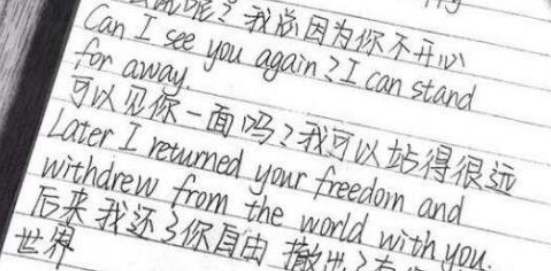 我总因为你不开心
Can I see you again? I can stand
for away.
可以见你一面吗?我可以站得很远
Later I returned your freedom and
withdrew from the world with you.
后来我还了你自由 撤出了有你
世界